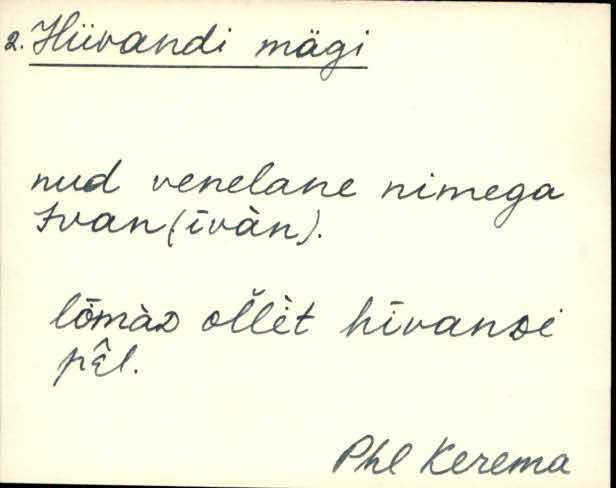 2. Hiivandi mägi
nud venelane nimega
Ivan (īvàn).
lōmàᴅ ol̆l̆èt hīvanᴅi
pɛ̂l.
Phl Kerema